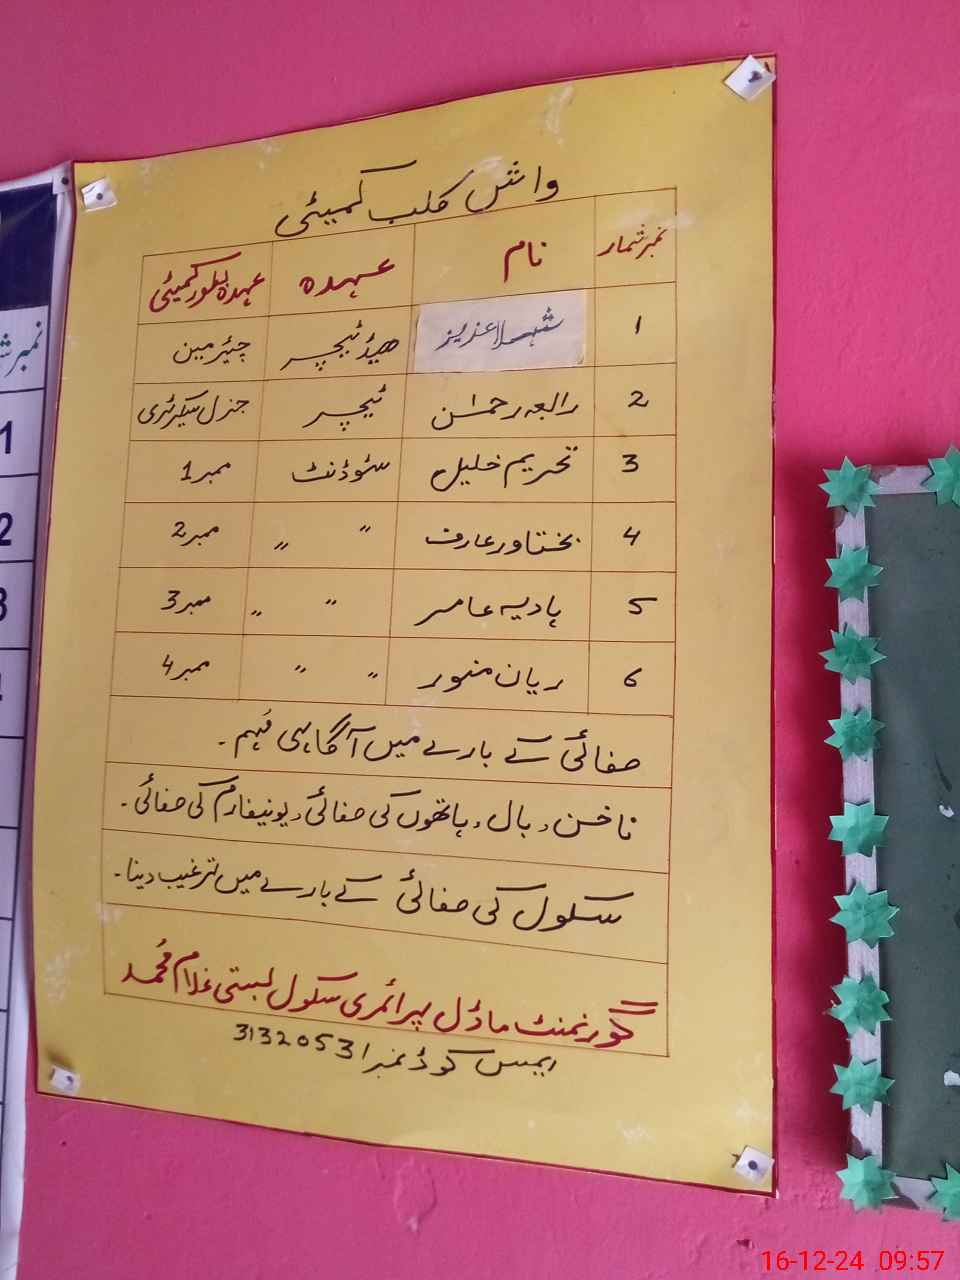 واش کلب کمیٹی
نمبر شمار نام عہدہ عہدہ بطور کمیٹی
1 شہلا عزیز ہیڈ ٹیچر چیئرمین
2 رابعہ رحمٰن ٹیچر جنرل سیکرٹری
3 تحریم خلیل سٹوڈنٹ ممبر 1
4 بختاور عارف " " ممبر 2
5 ہادیہ عامر " " ممبر 3
6 ریان منور " " ممبر 4
صفائی کے بارے میں آگاہی مُہم ۔
ناخن، بال، ہاتھوں کی صفائی، یونیفارم کی صفائی ۔
سکول کی صفائی کے بارے میں ترغیب دینا ۔
گورنمنٹ ماڈل پرائمری سکول بستی غلام مُحمد
ایمس کوڈ نمبر 31320531
نمبر
1
2
3
16-12-24 09:57